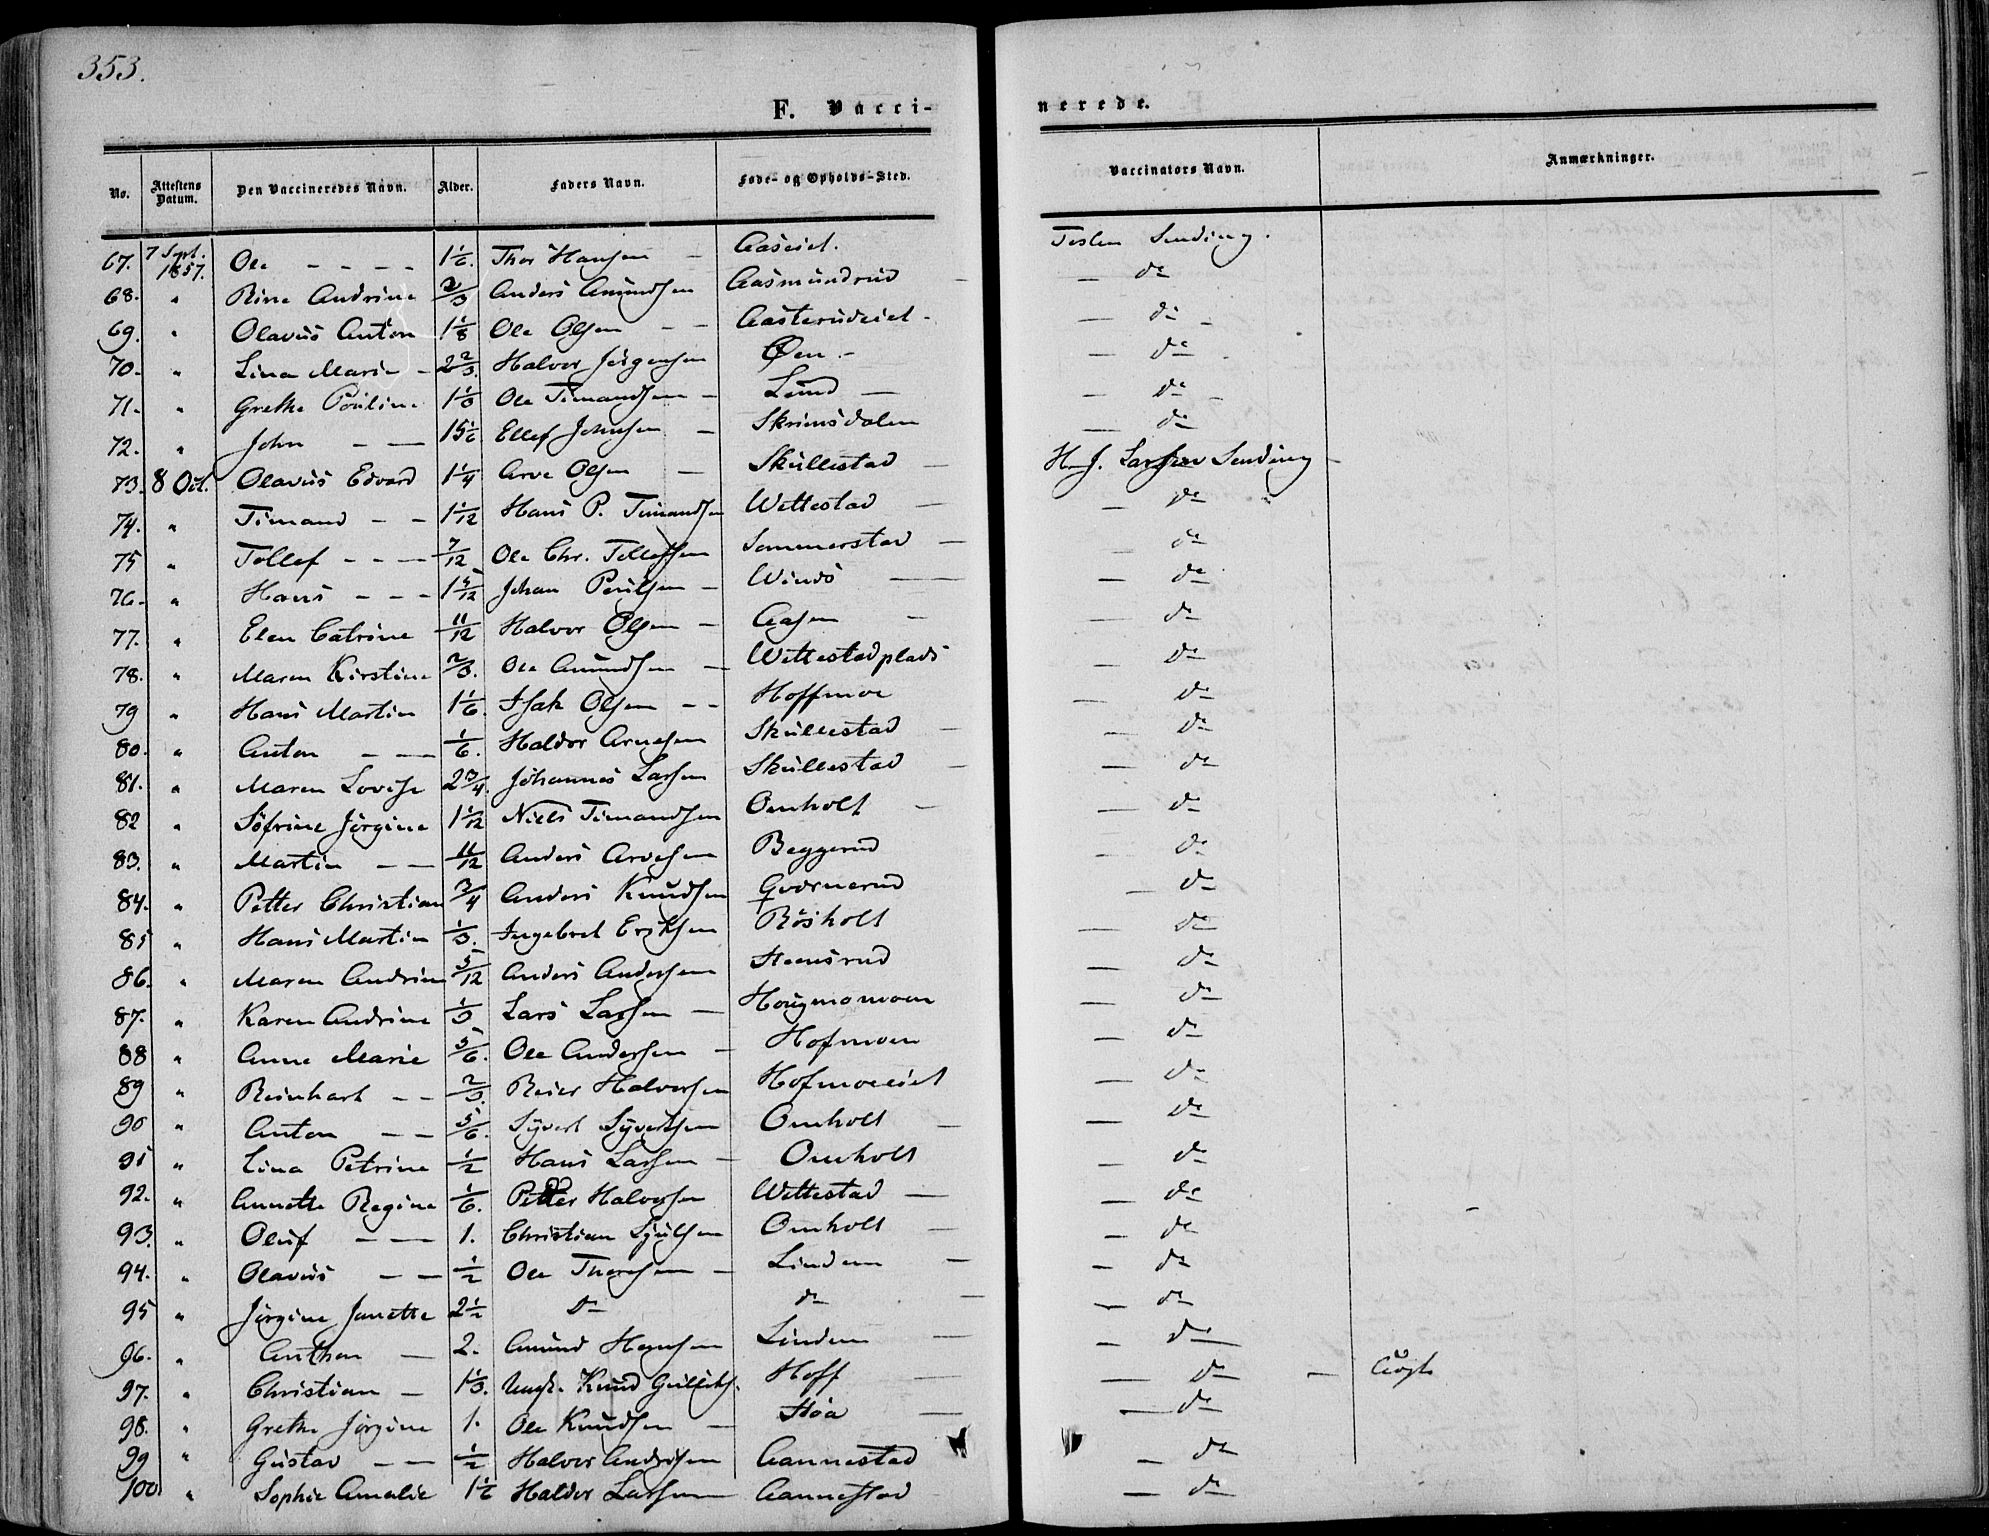 353.
F. Vacci-
nerede.
No. Attestens Datum. Den Vaccineredes Navn. Alder. Faders Navn. Føde- og Opholds-Sted. Vaccinators Navn. Anmærkninger.
67. 7 Sept. 1857. Ole - - - - 1 1/6 Thor Hansen - Aaseiet. Teslen Sending.
68. " Rine Andrine 2/3 Anders Amundsen Aasmundrud - — do
69. " Olavus Anton 1 1/8 Ole Olsen - - Aasterudeiet - — do -
70. " Lina Marie - 2 2/3. Halvor Jörgensen Øen - — do
71. " Grethe Pouline 1 1/3 Ole Timandsen - Lund — — do -
72. " John - — 15 1/6 Ellef Johnsen - Skrimsdalen — do
73. 8 Oct. Olavus Edvard 1 1/4 Arve Olsen - Skullestad — H. J. Larsen Sending -
74. " Timand - - 1 1/12 Hans P. Timandsen Wettestad — — do "
75 " Tollef - - — 7/12 Ole Chr. Tollefsen Sommerstad — — do
76. " Hans - - - 1 5/12 Johan Poulsen - Windo — — do
77. " Elen Catrine 11/12 Halvor Olsen - Aasen - — do
78. " Maren Kirstine 2/3. Ole Amundsen - Wettestadplads — do
79 " Hans Martin 1 1/6. Isak Olsen - - Hoffmoe — do
80. " Anton - — 1/6. Haldor Arnesen Skullestad - — do
81. " Maren Lovise 2 3/4. Johannes Larsen Skullestad - — do
82 " Söfrine Jörgine 1 1/12 Niels Timandsen Omholt - — do
83. " Martin - — 11/12 Anders Arvesen Beggerud — do
84. " Petter Christian 3/4 Anders Knudsen Qværnerud — do
85 " Hans Martin 1/3. Ingebret Eriksen Rösholt — do
86. " Maren Andrine 5/12 Anders Andersen Steensrud — do
87. " Karen Andrine 1/3 Lars Larsen - Hougmomoen — do
88 " Anne Marie 5/6. Ole Andersen - Hofmoen — do
89 " Reinhart - - 2/3. Reier Halvorsen Hofmoeeiet — do
90 " Anton - — 5/6. Syvert Syvertsen Omholt - — do
91 " Lina Petrine 1/2 Hans Larsen - Omholt — do
92. " Annette Regine 1/6. Petter Halvorsen Wettestad — — do
93. " Oluf - — 1. Christian Sjulsen Omholt - — do
94. " Olavus - — 1/2 Ole Thoresen - Lindem — — do
95 " Jörgine Janette 2 1/2 do do — — do
96. " Anthon — 2. Amund Hansen Lindem — — do
97. " Christian - 1 1/3. Ungk. Knud Gulliks. Hoff — — do - Uægte
98. " Grethe Jörgine 1. Ole Knudsen — Støa — — do
99 " Gustav - — 1/2 Halvor Andersen Aannestad — do
100 " Sophie Amalie 1 1/2 Haldor Larsen Aannestad — do